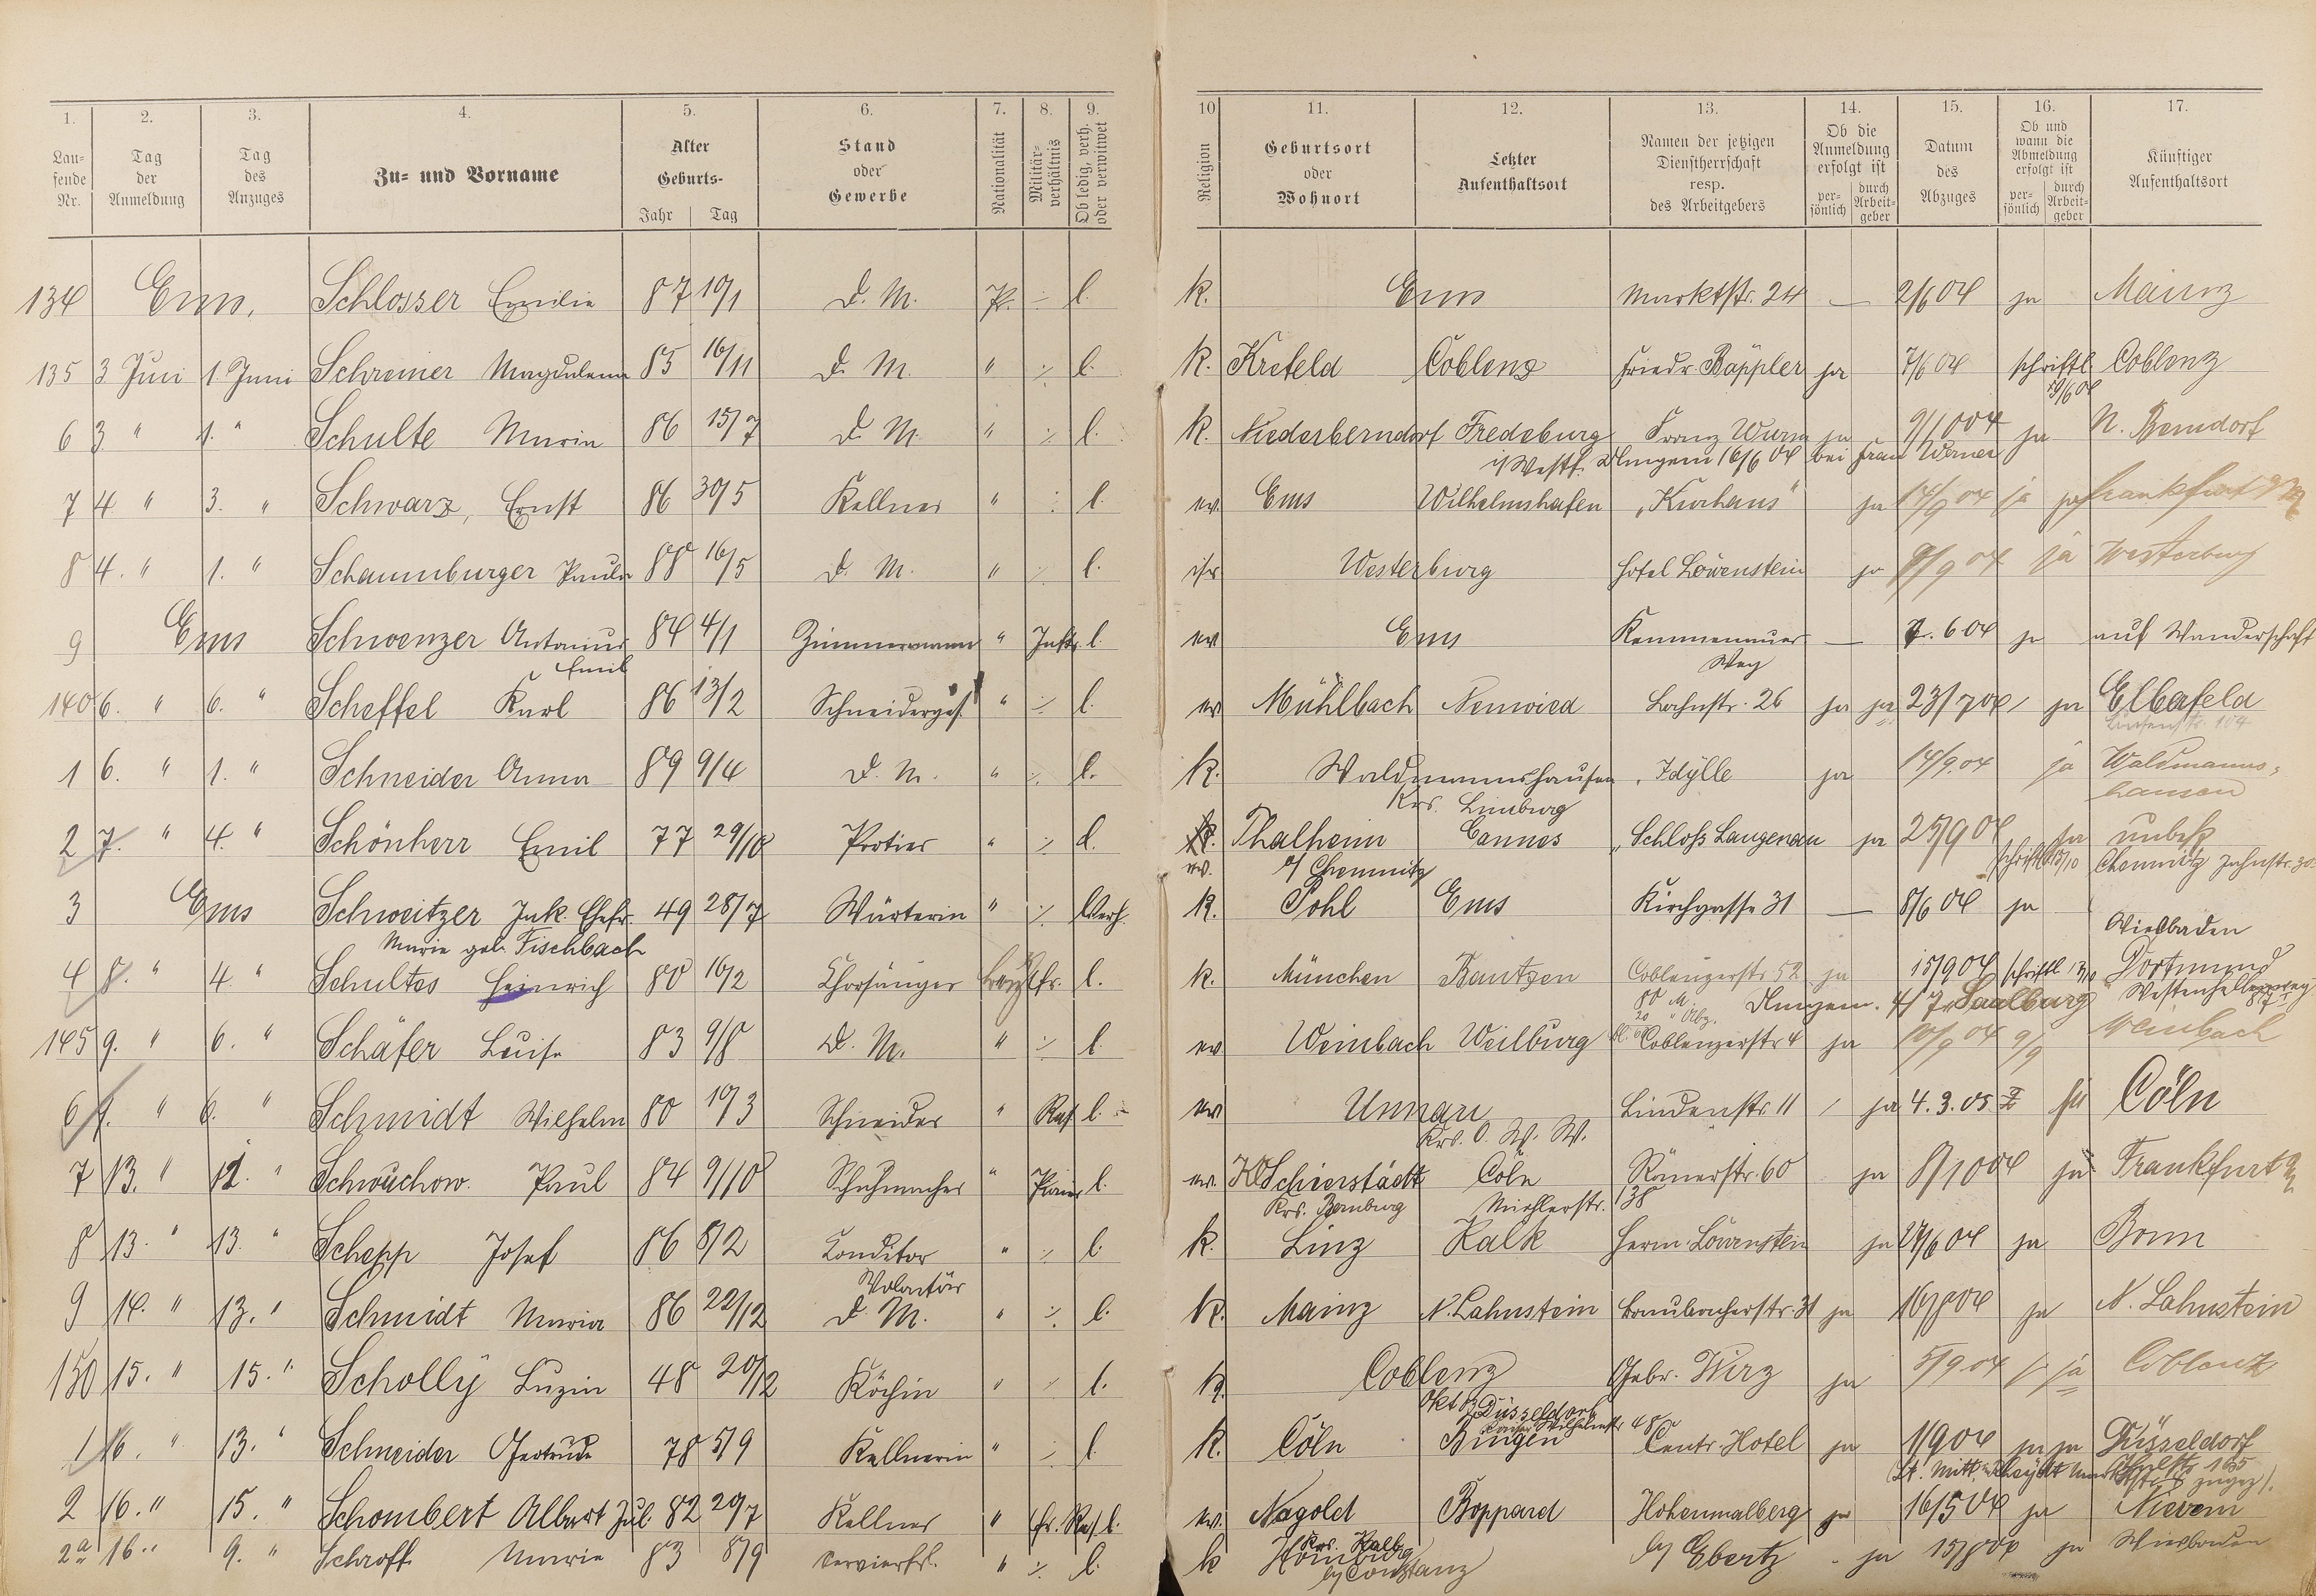 1. 2. 3. 4. 5. 6. 7. 8. 9. 10 11. 12. 13. 14. 15. 16. 17.
Laufende Nr. Tag der Anmeldung Tag des Anzuges Zu= und Vorname Alter Geburts- Jahr Tag Stand oder Gewerbe Nationalität Militärverhältnis Ob ledig, verh. oder verwitwet Religion Geburtsort oder Wohnort Letzter Aufenthaltsort Namen der jetzigen Dienstherrschaft resp. des Arbeitgebers Ob die Anmeldung erfolgt ist persönlich durch Arbeitgeber Datum des Abzuges Ob und wann die Abmeldung erfolgt ist persönlich durch Arbeitgeber Künftiger Aufenthaltsort
134 Ems. Schlosser Emilie 87 19/1 D. M. Pr. ÷ l. K. Ems Marktstr. 24 — 2/6 04 ja Mainz
135 3 Juni 1 Juni Schreiner Magdalena 85 16/11 D. M. " ÷ l. K. Krefeld Coblenz Friedr. Bäppler ja 7/6 04 schriftl. Coblenz
6 3 " 1. " Schulte Maria 86 15/7 D. M. " ÷ l. K. Niederberndorf Fredeburg Franz Wurm ja 9/10 04 ja N. Berndorf
i/Westf. Umgem 16/6 04 bei Frau Werner
7 4 " 3. " Schwarz, Ernst 86 30/5 Kellner " ÷ l. ev. Ems Wilhelmshafen „Kurhaus" ja 14/9 04 ja Frankfurt a/M
8 4. " 1. " Schaumburger Paula 88 16/5 D. M. " ÷ l. isr Westerburg Hotel Löwenstein ja 9/9 04 ja Westerburg
9 Ems Schwenzer Antonius 84 4/1 Zimmermann " l ev Ems Kemmenauer — 7. 6 04 ja auf Wanderschaft
Emil Weg
140 6. " 6. " Scheffel Karl 86 13/2 Schneiderges. " ÷ l. ev Mühlbach Neuwied Lahnstr. 26 ja ja 23/7 04 ja Elberfeld
1 6. " 1. " Schneider Anna 89 9/4 D. M. " ÷ l. K. Waldmannshausen „Idylle ja 14/9. 04 ja Waldmanns=
Krs. Limburg hausen
2 7. " 4. " Schönherr Emil 77 29/10 Portier " ÷ l. Thalheim Cannes „Schloß Langenau ja 25/9 04 ja unbek
ev. a/ Chemnitz schriftl. 13/10 Chemnitz Jahnstr. 30
3 Ems Schweitzer Jak. Ehefr. 49 28/7 Wärterin " ÷ Verh. K. Pohl Ems Kirchgasse 31 — 8/6 04 ja Wiesbaden
Marie geb. Fischbach
4 8. " 4. " Schultes Heinrich 80 16/2 Chorsänger l. k. München Bautzen Coblenzerstr. 52 ja 15/9 04 schriftl Dortmund
Umgem. 4/7 Saalburg Westenhellerweg
145 9. " 6. " Schäfer Luise 83 9/8 D. M. " ÷ l. ev Weinbach Weilburg Coblenzerstr 4 ja 10/9 04 9/9 Weinbach
6 9. " 6. " Schmidt Wilhelm 80 19/3 Schneider " Res l. ev Unnau Lindenstr 11 ja 4. 3. 05 ja Cöln
Krs. O. W. W.
7 13. " 12. " Schwuchow. Paul 84 9/10 Schuhmacher " l. ev. Kl Schierstädt Cöln Römerstr. 60 ja 8/10 04 ja Frankfurt
Krs. Bernburg 138
8 13. " 13. " Schepp Josef 86 8/2 Conditor " ÷ l. k. Linz Kalk Herm. Löwenstein ja 27/6 04 ja Bonn
Volontär
9 14. " 13. " Schmidt Maria 86 22/12 D. M. " ÷ l. K. Mainz N. Lahnstein Braubacherstr. 31 ja 16/8 04 ja N. Lahnstein
150 15. " 15. " Scholly Luzia 48 20/12 Köchin " ÷ l. k. Coblenz Gebr. Wirz ja 5/9 04 ja Coblenz
Düsseldorf
1 16. " 13. " Schneider Gertrude 78 5/9 Kellnerin " ÷ l. K. Cöln Bingen Centr. Hotel ja 1/9 04 ja ja Düsseldorf
2 16. " 15. " Schombert Albert Jul. 82 20/7 Kellner " l. ev. Nagold Boppard Hohenmalberg ja 16/5 04 ja Nievern
2a 16. " 9. " Schroff Marie 83 8/9 Servierfrl. " ÷ l. k Homburg b/ Ebertz - ja 15/8 04 ja Wiesbaden
b/ Constanz